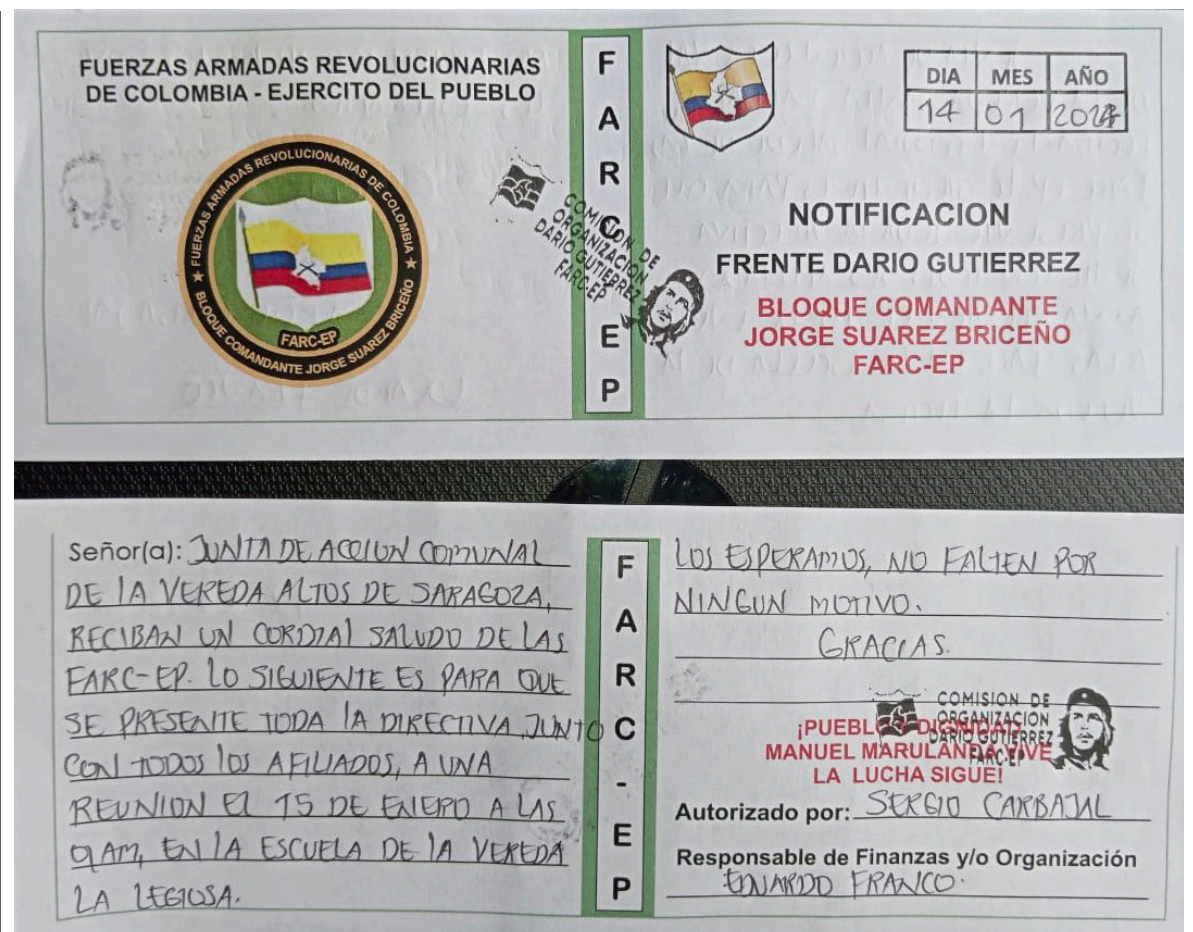 FUERZAS ARMADAS REVOLUCIONARIAS
DE COLOMBIA - EJERCITO DEL PUEBLO
★ FUERZAS ARMADAS REVOLUCIONARIAS DE COLOMBIA ★
BLOQUE COMANDANTE JORGE SUAREZ BRICEÑO
FARC-EP
F
A
R
C
-
E
P
COMISION DE
ORGANIZACION
DARIO GUTIERREZ
FARC-EP
DIA MES AÑO
14 01 2024
NOTIFICACION
FRENTE DARIO GUTIERREZ
BLOQUE COMANDANTE
JORGE SUAREZ BRICEÑO
FARC-EP
Señor(a): JUNTA DE ACCIUN COMUNAL
DE LA VEREDA ALTOS DE SARAGOZA,
RECIBAN UN CORDIAl SALUDO DE LAS
FARC-EP. LO SIGUIENTE ES PARA QUE
SE PRESENTE TODA LA DIRECTIVA, JUNTO
CON TODOS lOS AFILIADOS, A UNA
REUNION El 15 DE ENERO A LAS
9AM, EN lA ESCUELA DE lA VEREDA
LA LEGIOSA.
F
A
R
C
-
E
P
LOS ESPERAMOS, NO FALTEN POR
NINGUN MOTIVO.
GRACIAS.
COMISION DE
ORGANIZACION
DARIO GUTIERREZ
FARC-EP
¡PUEBLO Y DIGNIDAD!
MANUEL MARULANDA VIVE
LA LUCHA SIGUE!
Autorizado por: SERGIO CARBAJAL
Responsable de Finanzas y/o Organización
EDUARDO FRANCO.